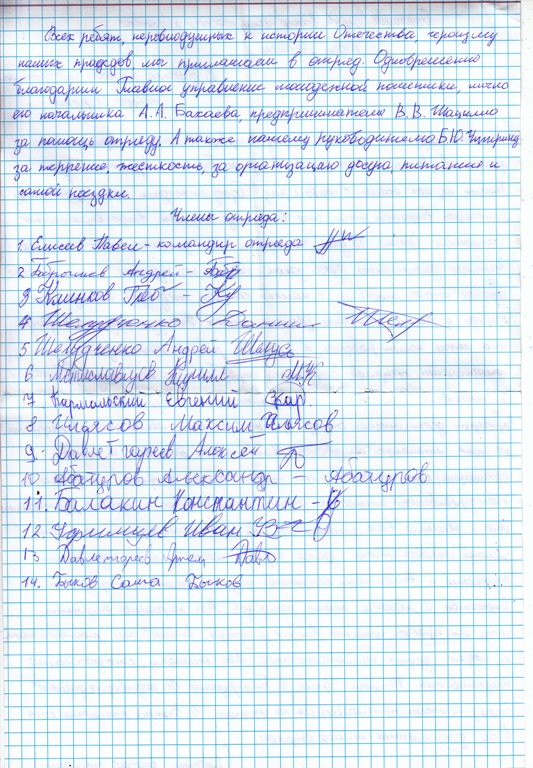 Всех ребят, неравнодушных к истории Отечества героизму
наших прадедов мы приглашаем в отряд. Одновременно
благодарим Главное управление молодежной политики, лично
его начальника А.А. Бакаева, предпринимателя В.В.
за помощь отряду. А также нашему руководителю Б.Ю.
за терпение, жесткость, за организацию досуга, питания и
самой поездки.
Члены отряда:
1. Елисеев Павел - командир отряда
2 Андрей -
3 Климков Глеб -
4 Шелудченко Даниил
5 Шелудченко Андрей
6 Кирилл МК
7 Кармальский Евгений
8 Ильясов Максим Ильясов
9. Давлетгареев Алексей
10 Абатуров Александр - Абатуров
11. Балакин Константин -
12. Уфимцев Иван
13 Давлетгареев Артем
14. Быков Саша Быков